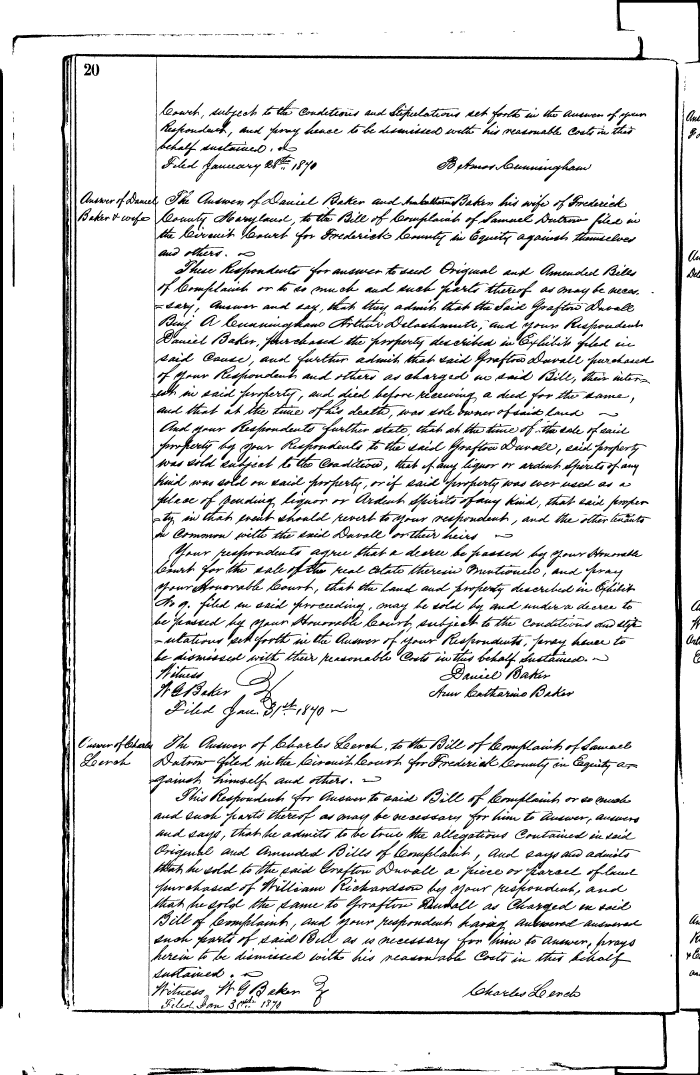 20
Court, subject to the Conditions and Stipulations set forth in the Answer of your
Respondent, and pray hence to be dismissed with his reasonable Costs in this
behalf sustained.
Filed January 28th 1870 B. Amos Cunningham
Answer of Daniel
Baker & wife
The Answer of Daniel Baker and Ann Catharine Baker his wife of Frederick
County Maryland, to the Bill of Complaint of Samuel Dutrow filed in
the Circuit Court for Frederick County in Equity against themselves
and others.
These Respondents for answer to said Original and Amended Bills
of Complaint or to so much and such parts thereof as may be neces-
=sary, answer and say, that they admit that the Said Grafton Duvall
Benj A Cunningham Arthur Delashmutt, and your Respondent
Daniel Baker, purchased the property described in Exhibits filed in
said Cause, and further admit that said Grafton Duvall purchased
of your Respondent and others as charged in said Bill, their inter=
=est in said property, and died before receiving a deed for the same,
and that at the time of his death, was sole owner of said land
And your Respondents further state, that at the time of the sale of said
property by your Respondents to the said Grafton Duvall, said property
was sold subject to the Condition, that if any liquor or ardent spirits of any
kind was sold on said property, or if said property was ever used as a
place of vending liquor or Ardent Spirits of any kind, that said proper
=ty in that event should revert to your respondent, and the other tenants
in Common with the said Duvall or their heirs
Your respondents agree that a decree be passed by your Honorable
Court for the sale of the real estate therein mentioned, and pray
your Honorable Court, that the land and property described in Exhibit
No 9. filed in said proceeding, may be sold by and under a decree to
be passed by your Honorable Court, subject to the Conditions and stip
=ulations set forth in the Answer of your Respondents, pray hence to
be dismissed with their reasonable Costs in this behalf sustained.
Witness Daniel Baker
W G Baker Ann Catharine Baker
Filed Jan. 31st 1870
Answer of Charles
Lerch
The Answer of Charles Lerch, to the Bill of Complaint of Samuel
Dutrow filed in the Circuit Court for Frederick County in Equity a=
gainst himself and others.
This Respondent for Answer to said Bill of Complaint or so much
and such parts thereof as may be necessary for him to answer, answers
and says, that he admits to be true the allegations Contained in said
Original and Amended Bills of Complaint, And says and admits
that he sold to the said Grafton Duvall a piece or parcel of land
purchased of William Richardson by your respondent, and
that he sold the same to Grafton Duvall as Charged in said
Bill of Complaint, and your respondent having answered answered
such parts of said Bill as is necessary for him to answer, prays
herein to be dismissed with his reasonable Costs in this behalf
sustained.
Witness W G Baker Charles Lerch
Filed Jan 31st 1870